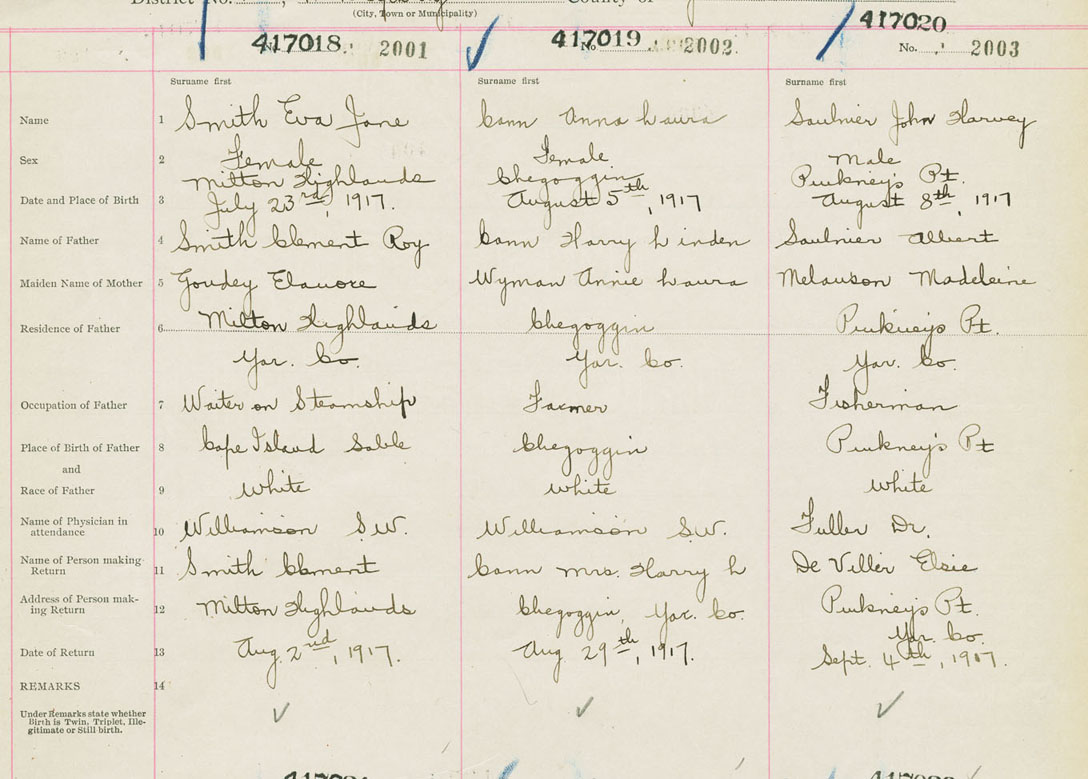 District No.
County of
(City, Town or Municipality)
417018 2001
417019 No. 2002
417020
No. 2003
Surname first
Surname first
Surname first
Name 1 Smith Eva Jane
Cann Anna Laura
Saulnier John Harvey
Sex 2 Female
Female
Male
Milton Highlands
Chegoggin
Pinkney's Pt.
Date and Place of Birth 3 July 23rd, 1917.
August 5th, 1917
August 8th, 1917
Name of Father 4 Smith Clement Roy
Cann Harry Linden
Saulnier Albert
Maiden Name of Mother 5 Goudey Elanore
Wyman Annie Laura
Melanson Madeleine
Residence of Father 6 Milton Highlands
Chegoggin
Pinkney's Pt.
Yar. Co.
Yar. Co.
Yar. Co.
Occupation of Father 7 Waiter on Steamship
Farmer
Fisherman
Place of Birth of Father 8 Cape Island Sable
Chegoggin
Pinkney's Pt
and
Race of Father 9 White
White
White
Name of Physician in
attendance 10 Williamson S.W.
Williamson S.W.
Fuller Dr.
Name of Person making
Return 11 Smith Clement
Cann Mrs. Harry L
De Viller Elsie
Address of Person mak-
ing Return 12 Milton Highlands
Chegoggin, Yar. Co.
Pinkney's Pt.
Yar. Co.
Date of Return 13 Aug. 2nd, 1917.
Aug 29th, 1917.
Sept. 4th, 1917.
REMARKS 14
Under Remarks state whether
Birth is Twin, Triplet, Ille-
gitimate or Still birth.